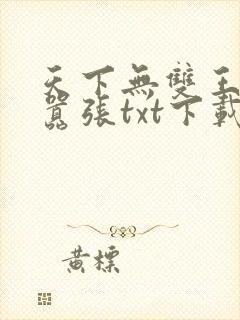 天下無雙王
囂張txt下載
黃標